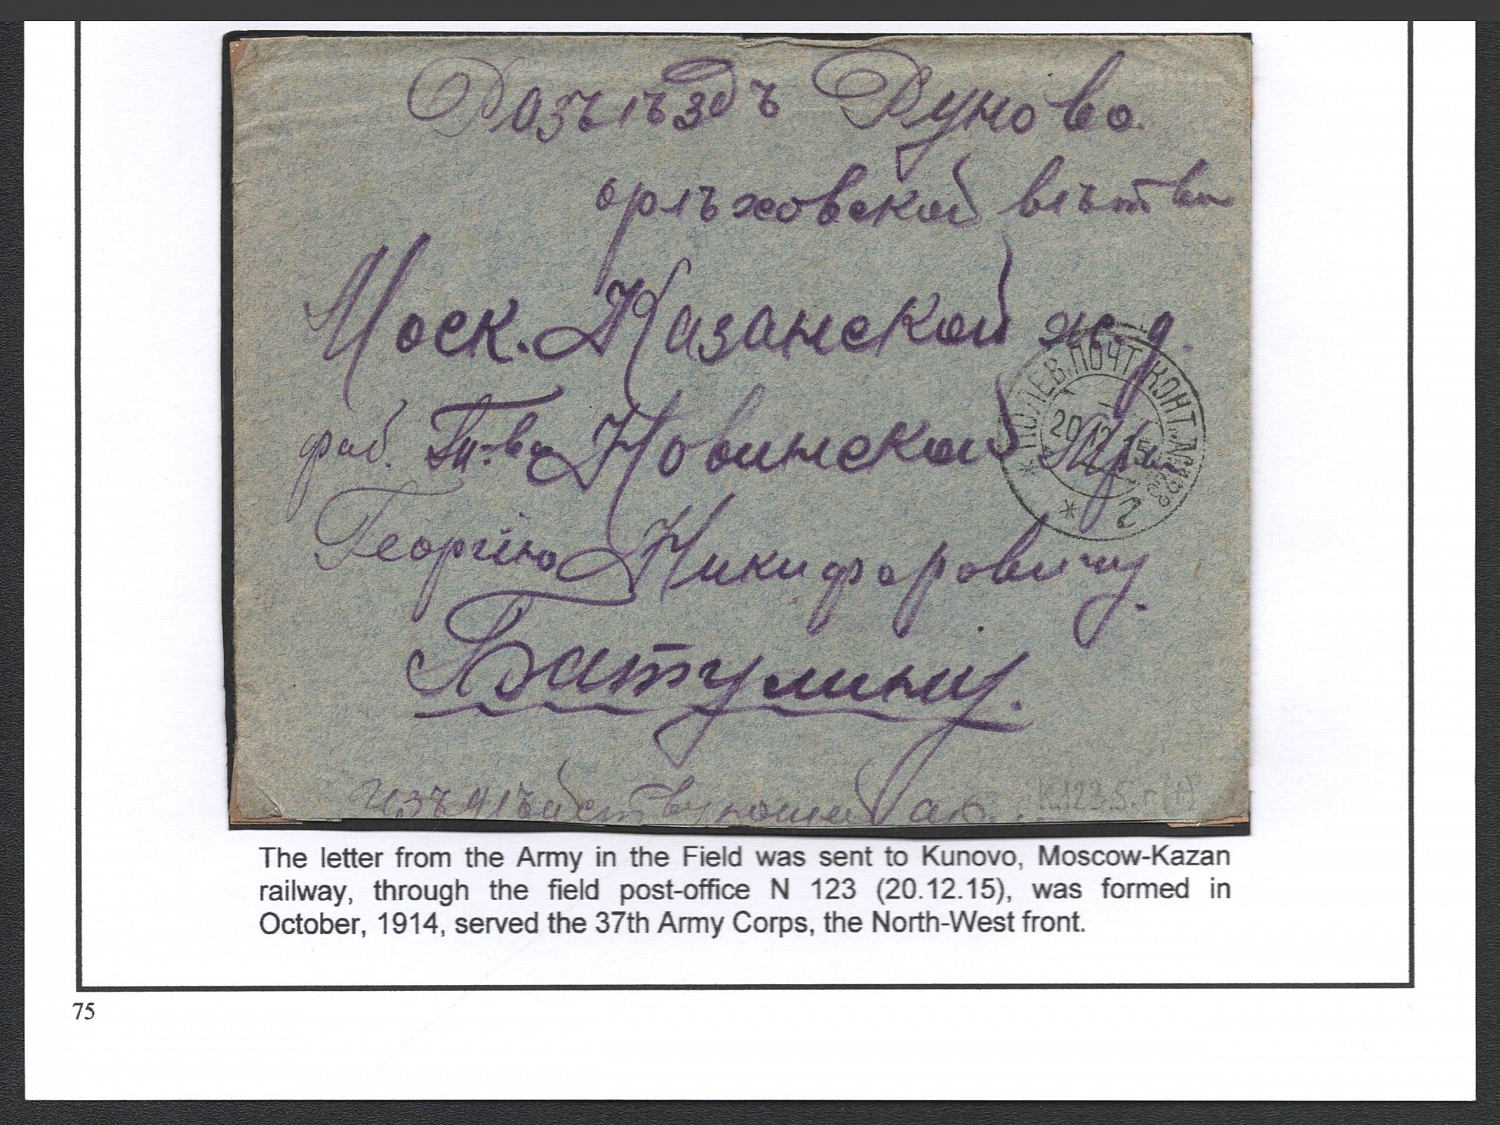 Разъѣздъ Куново.
орѣховской вѣтви
Моск. Казанской ж. д.
фаб. Т-ва Новинской
Георгію Никифоровичу
Батулину.
изъ дѣйствующей
ПОЛЕВ. ПОЧТ. КОНТ. № 123
20.12.15
2
К.123.5.г(1)
The letter from the Army in the Field was sent to Kunovo, Moscow-Kazan
railway, through the field post-office N 123 (20.12.15), was formed in
October, 1914, served the 37th Army Corps, the North-West front.
75